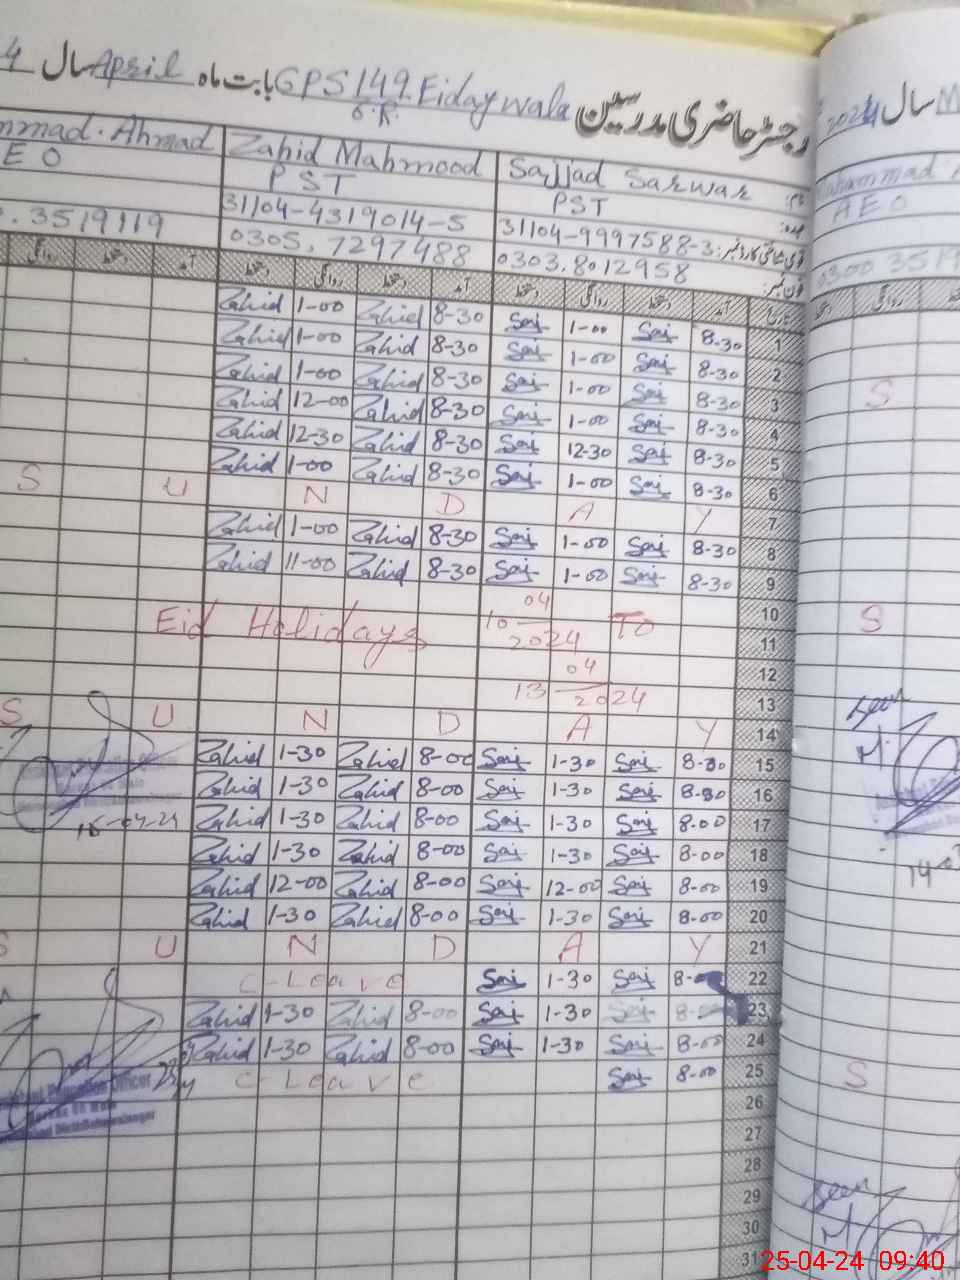 رجسٹر حاضری مدرسین GPS 149 6.R. Eidaywala بابت ماہ April سال
Sajjad Sarwar Zahid Mahmood Ahmad
PST PST AEO
31104-9997588-3 31104-4319014-5
0303.8012958 0305.7297488 3519119
تاریخ آمد دستخط روانگی دستخط آمد دستخط روانگی دستخط آمد دستخط روانگی
1 8-30 Saj 1-00 Saj 8-30 Zahid 1-00 Zahid
2 8-30 Saj 1-00 Saj 8-30 Zahid 1-00 Zahid
3 8-30 Saj 1-00 Saj 8-30 Zahid 1-00 Zahid
4 8-30 Saj 1-00 Saj 8-30 Zahid 12-00 Zahid
5 8-30 Saj 12-30 Saj 8-30 Zahid 12-30 Zahid
6 8-30 Saj 1-00 Saj 8-30 Zahid 1-00 Zahid
7 S U N D A Y
8 8-30 Saj 1-00 Saj 8-30 Zahid 1-00 Zahid
9 8-30 Saj 1-00 Saj 8-30 Zahid 11-00 Zahid
10
11 Eid Holidays 10-04-2024 To
12
13 13-04-2024
14 S U N D A Y
15 Saj 1-30 Saj 8-00 Zahid 1-30 Zahid
16 Saj 1-30 Saj 8-00 Zahid 1-30 Zahid
17 8-00 Saj 1-30 Saj 8-00 Zahid 1-30 Zahid
18 8-00 Saj 1-30 Saj 8-00 Zahid 1-30 Zahid
19 8-00 Saj 12-00 Saj 8-00 Zahid 12-00 Zahid
20 8-00 Saj 1-30 Saj 8-00 Zahid 1-30 Zahid
21 S U N D A Y
22 Saj 1-30 Saj C-Leave
23 Saj 1-30 Saj 8-00 Zahid 1-30 Zahid
24 8-00 Saj 1-30 Saj 8-00 Zahid 1-30 Zahid
25 8-00 Saj C-Leave
26
27
28
29
30
31
Education Officer
سال 2024
AEO
S
S
Seen
S
Seen
25-04-24 09:40